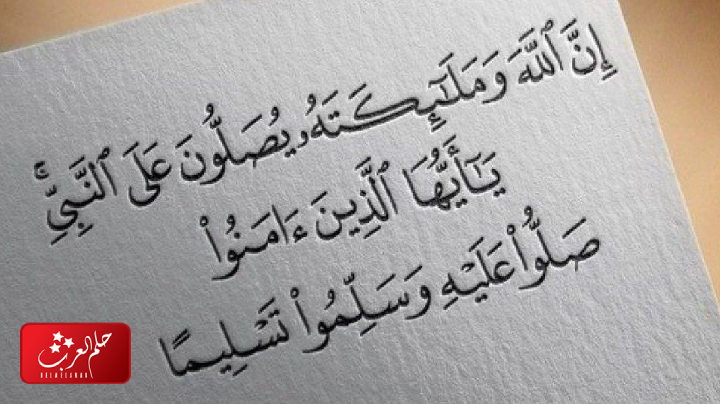 إِنَّ ٱللَّهَ وَمَلَٰٓئِكَتَهُۥ يُصَلُّونَ عَلَى ٱلنَّبِيِّۚ
يَٰٓأَيُّهَا ٱلَّذِينَ ءَامَنُوا۟
صَلُّوا۟ عَلَيْهِ وَسَلِّمُوا۟ تَسْلِيمًا
حلم العرب